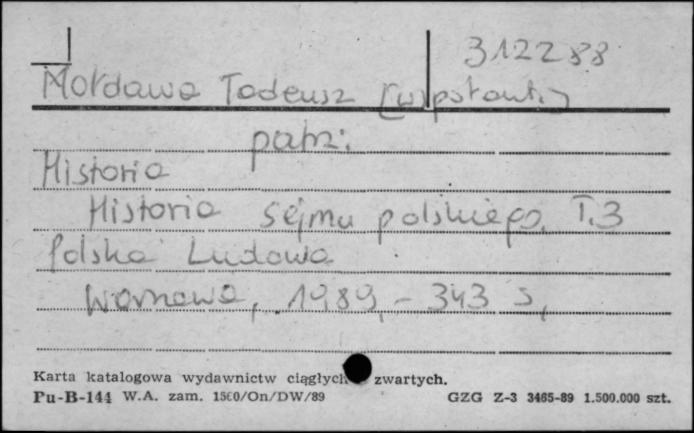 312288
Mołdawa Tadeusz [współaut.]
patrz:
Historia
Historia sejmu polskiego. T.3
Polska Ludowa
Warszawa, 1989, - 343 s,
Karta katalogowa wydawnictw ciągłych zwartych.
Pu-B-144 W.A. zam. 1560/On/DW/89 GZG Z-3 3465-89 1.500.000 szt.